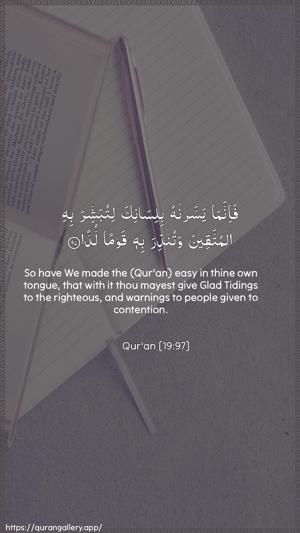 فَإِنَّمَا يَسَّرْنَٰهُ بِلِسَانِكَ لِتُبَشِّرَ بِهِ
الْمُتَّقِينَ وَتُنذِرَ بِهِۦ قَوْمًا لُّدًّا
So have We made the (Qur'an) easy in thine own
tongue, that with it thou mayest give Glad Tidings
to the righteous, and warnings to people given to
contention.
Qur'an [19:97]
https://qurangallery.app/